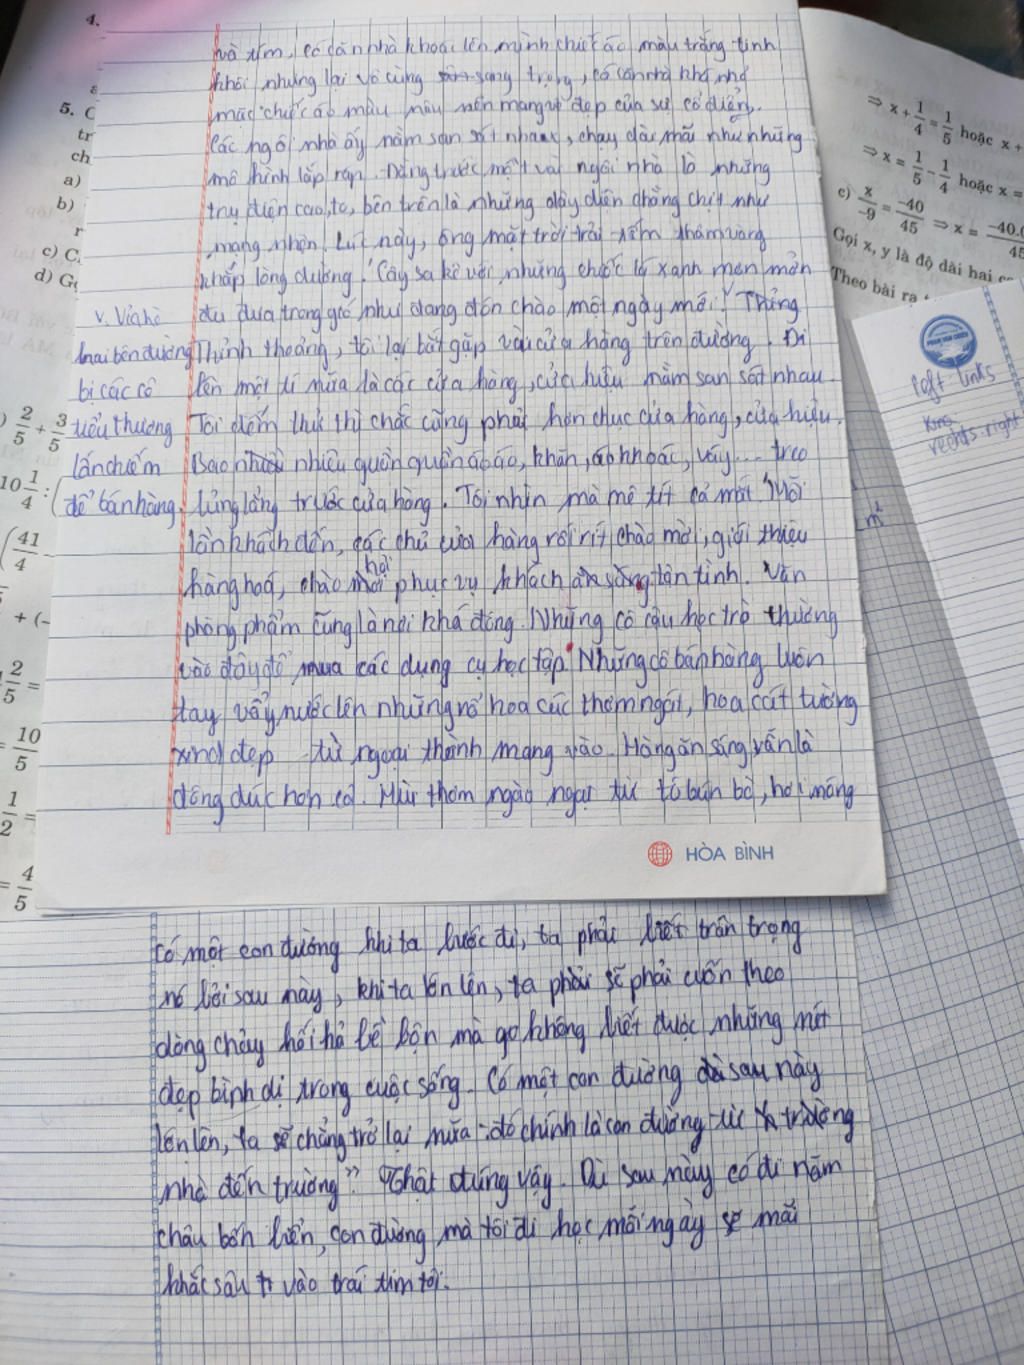 và tím, có căn nhà khoác lên mình chiếc áo màu trắng tinh
khôi nhưng lại vô cùng sang trọng, có căn nhà khá nhỏ
mặc chiếc áo màu nâu nên mang vẻ đẹp của sự cổ điển.
Các ngôi nhà ấy nằm san sát nhau, chạy dài mãi như những
mô hình lắp ráp. Đứng trước một vài ngôi nhà là những
trụ điện cao, to, bên trên là những dây điện chằng chịt như
mạng nhện. Lúc này, ông mặt trời trải nắm thảm vàng
khắp lòng đường. Cây sa kê với những chiếc lá xanh mơn mởn
đu đưa trong gió như đang đón chào một ngày mới. V Thỉng
v. Vỉa hè
hai bên đường
bị các cô
tiểu thương
lấn chiếm
để bán hàng.
Thỉnh thoảng, tôi lại bắt gặp vài cửa hàng trên đường. Đi
lên một tí nữa là các cửa hàng, cửa hiệu nằm san sát nhau.
Tôi đếm thử thì chắc cũng phải hơn chục cửa hàng, cửa hiệu.
Bao nhiêu quần áo, khăn, áo khoác, váy... treo
lủng lẳng trước cửa hàng. Tôi nhìn mà mê tít cả mắt. Mỗi
lần khách đến, các chủ cửa hàng rối rít chào mời, giới thiệu
hàng hoá, chào mời phục vụ khách tận tình. Văn
phòng phẩm cũng là nơi khá đông. Những cô cậu học trò thường
vào đây để mua các dụng cụ học tập. Những cô bán hàng luôn
tay vẩy nước lên những rổ hoa cúc thơm ngát, hoa cát tường
xinh đẹp từ ngoại thành mang vào. Hàng ăn sáng vẫn là
đông đúc hơn cả. Mùi thơm ngào ngạt từ tô bún bò, hơi nóng
HÒA BÌNH
Có một con đường khi ta bước đi, ta phải biết trân trọng
nó bởi sau này, khi ta lớn lên, ta phải sẽ phải cuốn theo
dòng chảy hối hả bề bộn mà không biết được những nét
đẹp bình dị trong cuộc sống. Có một con đường sau này
lớn lên, ta sẽ chẳng trở lại nữa: đó chính là con đường từ trường
nhà đến trường". Thật đúng vậy. Dù sau này có đi năm
châu bốn biển, con đường mà tôi đi học mỗi ngày sẽ mãi
khắc sâu vào trái tim tôi.
4.
5.
tr
ch
a)
b)
c) C
d) G
2/5 + 3/5
10 1/4 :
(41/4 -
+ (-
2/5 =
= 10/5
1/2 =
= 4/5
⇒ x + 1/4 = 1/5 hoặc x +
⇒ x = 1/5 - 1/4 hoặc x =
c) x/-9 = -40/45 ⇒ x = -40.(/45
Gọi x, y là độ dài hai
Theo bài ra
left links
rechts right
m²